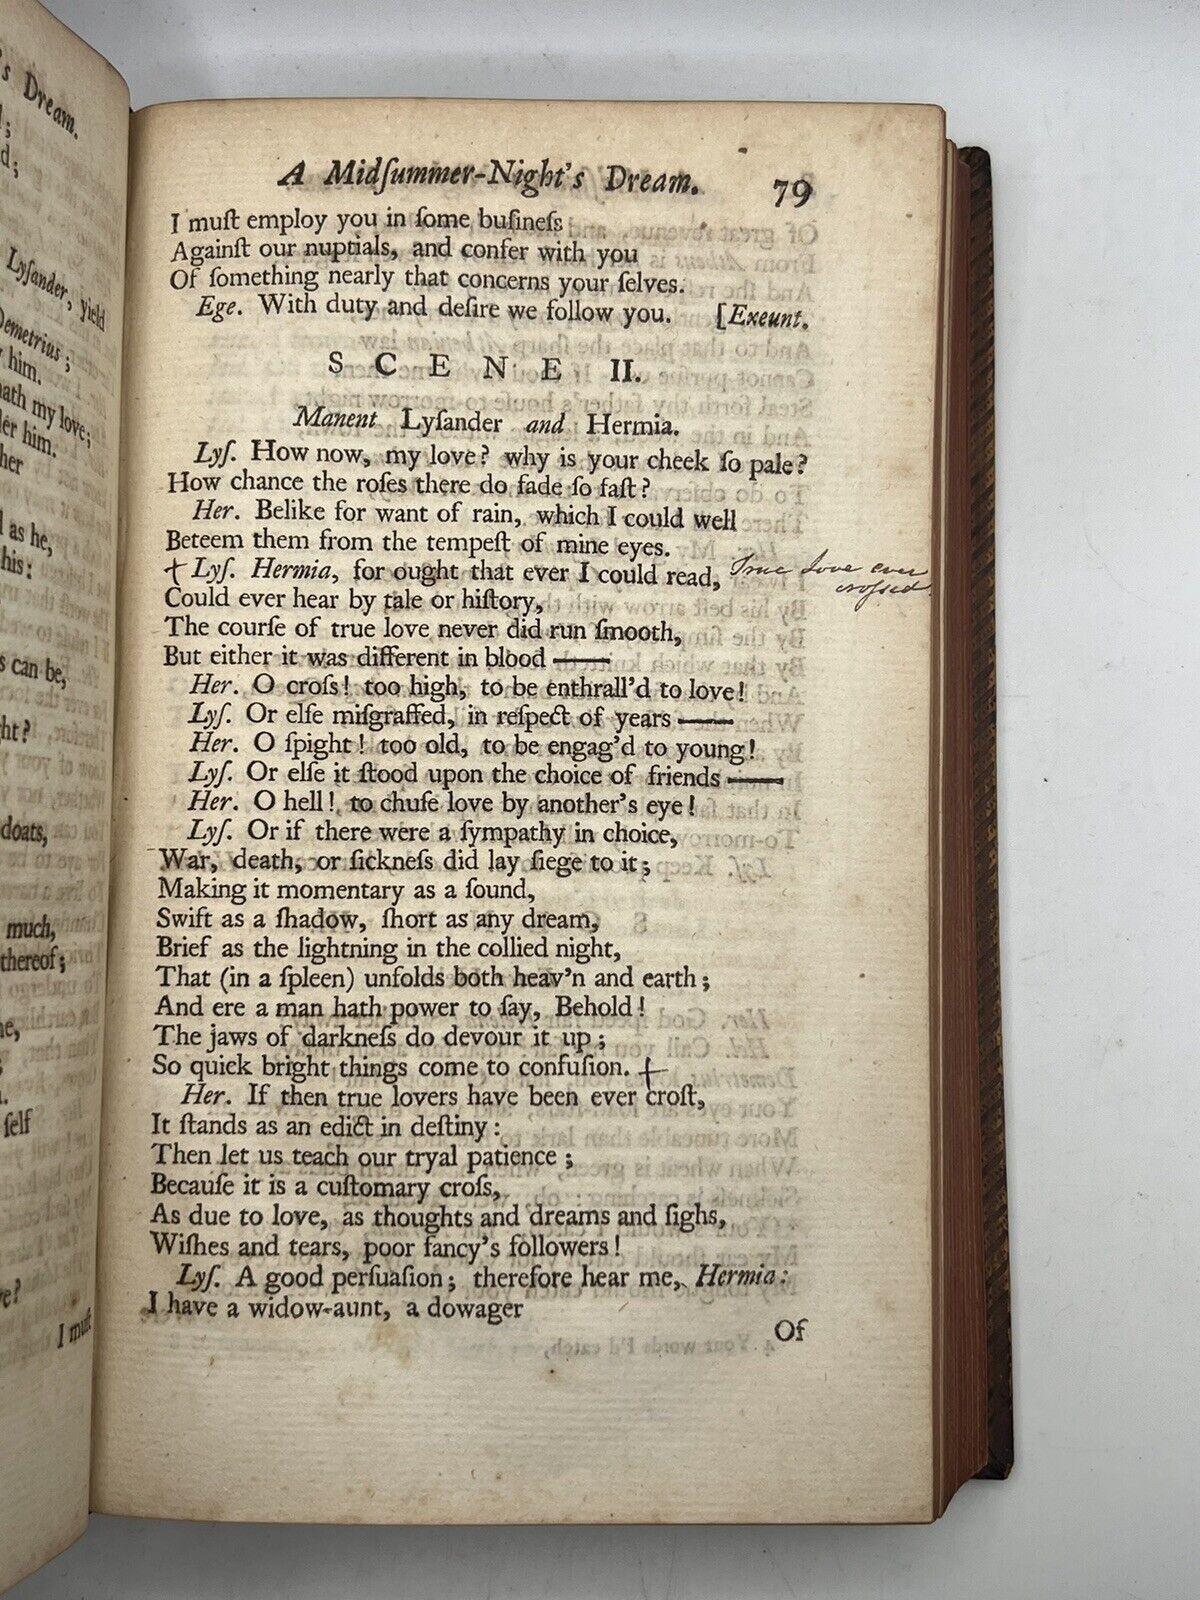 's Dream.
d;
Lysander, yield
Demetrius;
him.
hath my love;
her him.
her
d as he,
his:
s can be,
ht?
doats,
much,
thereof;
ne,
self
ve?
I must
A Midſummer-Night's Dream. 79
I muſt employ you in ſome buſineſs
Againſt our nuptials, and confer with you
Of ſomething nearly that concerns your ſelves.
Ege. With duty and deſire we follow you. [Exeunt.
SCENE II.
Manent Lyſander and Hermia.
Lyſ. How now, my love? why is your cheek ſo pale?
How chance the roſes there do fade ſo faſt?
Her. Belike for want of rain, which I could well
Beteem them from the tempeſt of mine eyes.
Lyſ. Hermia, for ought that ever I could read, True Love ever
crossed.
Could ever hear by tale or hiſtory,
The courſe of true love never did run ſmooth,
But either it was different in blood ——
Her. O croſs! too high, to be enthrall'd to love!
Lyſ. Or elſe miſgraffed, in reſpect of years ——
Her. O ſpight! too old, to be engag'd to young!
Lyſ. Or elſe it ſtood upon the choice of friends ——
Her. O hell! to chuſe love by another's eye!
Lyſ. Or if there were a ſympathy in choice,
War, death, or ſickneſs did lay ſiege to it;
Making it momentary as a ſound,
Swift as a ſhadow, ſhort as any dream,
Brief as the lightning in the collied night,
That (in a ſpleen) unfolds both heav'n and earth;
And ere a man hath power to ſay, Behold!
The jaws of darkneſs do devour it up;
So quick bright things come to confuſion.
Her. If then true lovers have been ever croſt,
It ſtands as an edict in deſtiny:
Then let us teach our tryal patience;
Becauſe it is a cuſtomary croſs,
As due to love, as thoughts and dreams and ſighs,
Wiſhes and tears, poor fancy's followers!
Lyſ. A good perſuaſion; therefore hear me, Hermia:
I have a widow-aunt, a dowager
Of